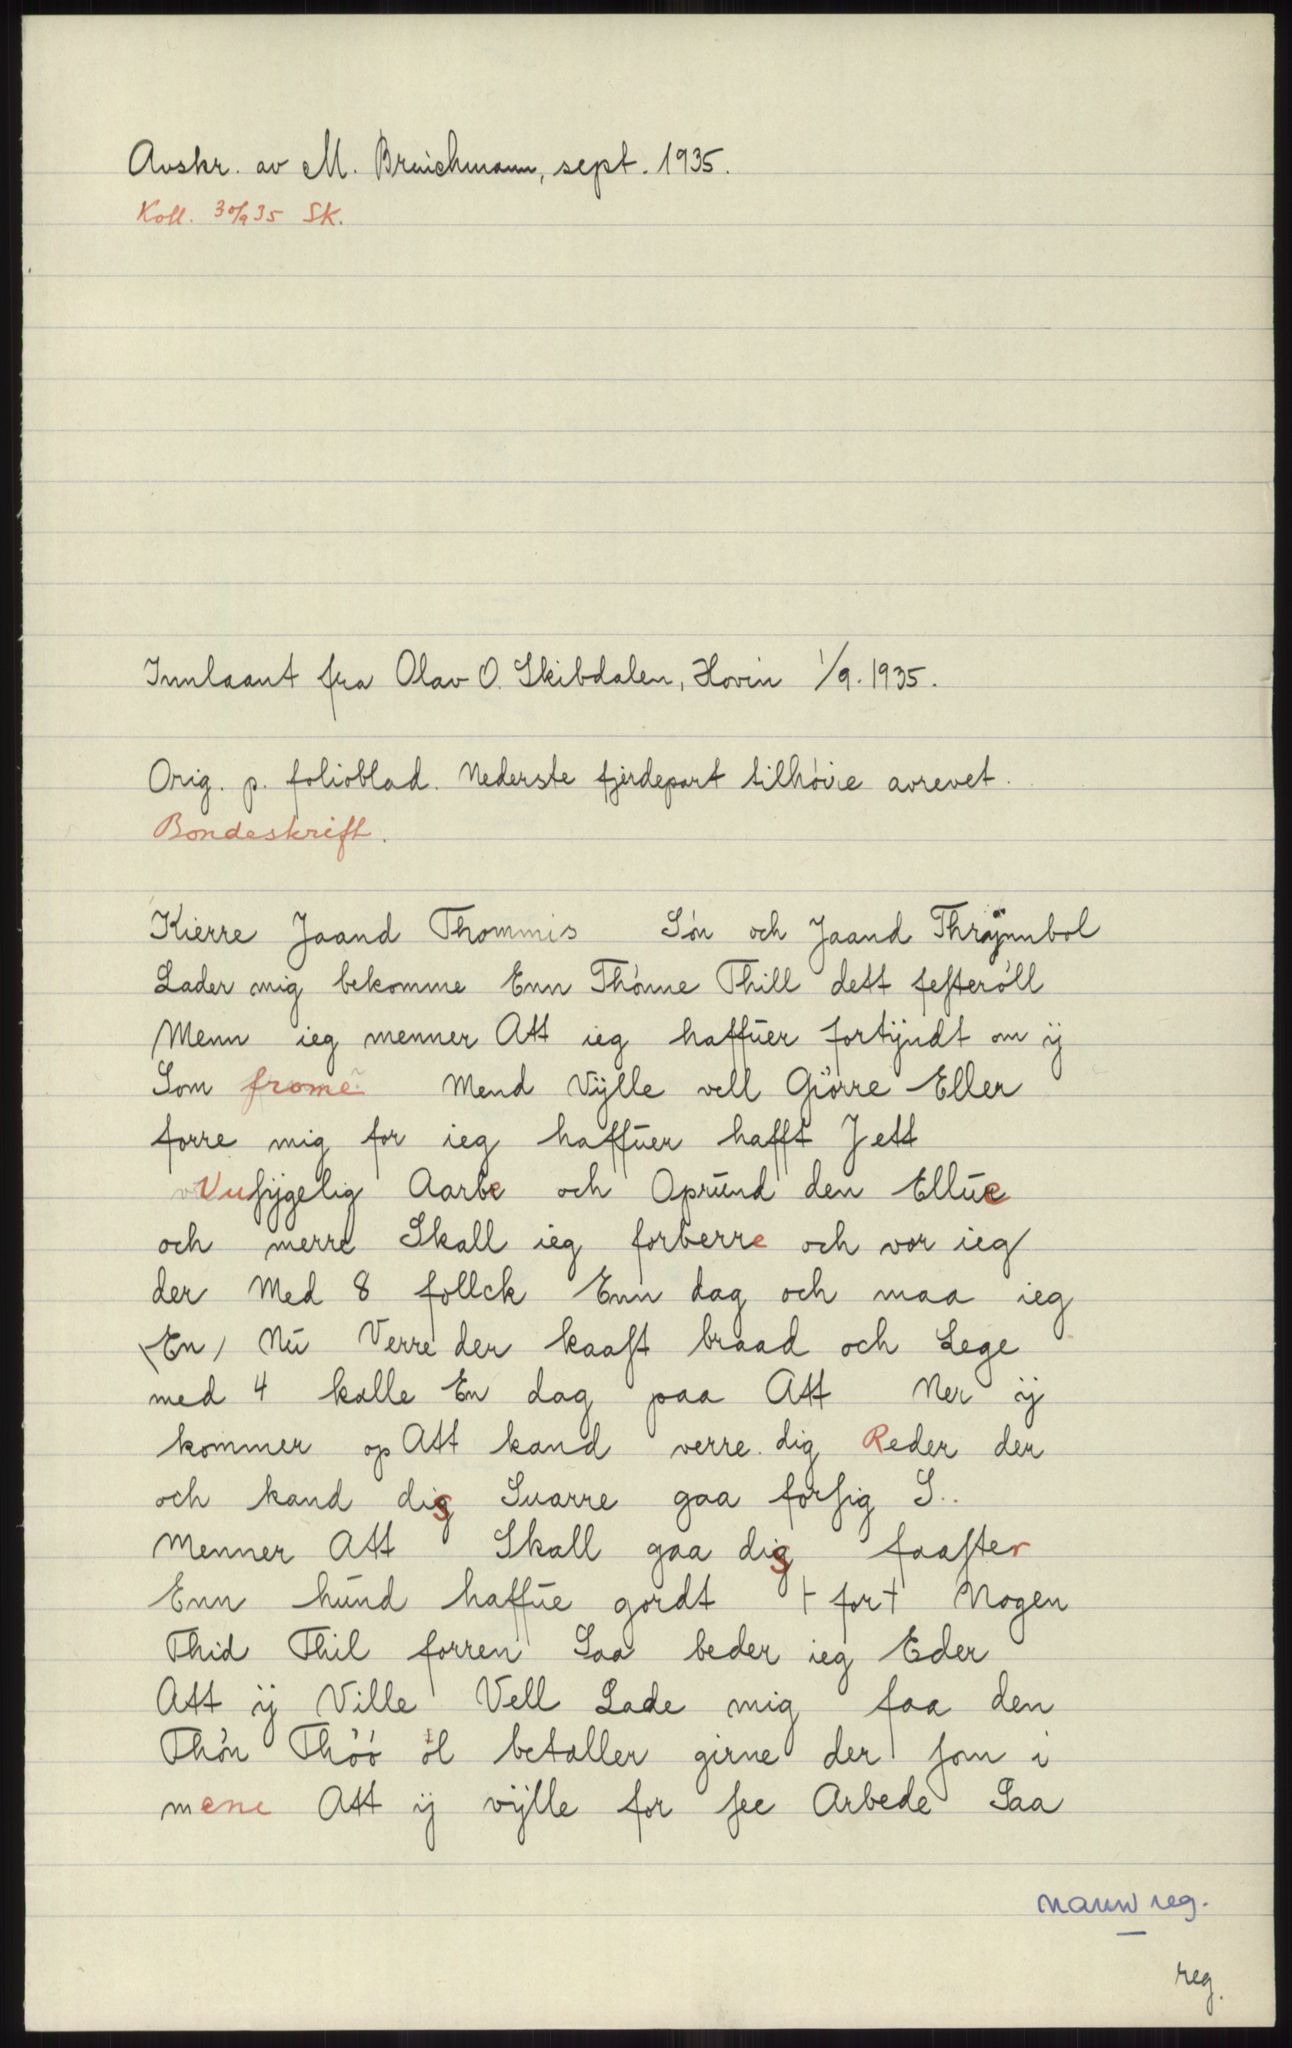 Avskr. av M. Bruichmann, sept. 1935.
Koll. 30/9 35 SK.
Innlaant fra Olav O. Skibdalen, Hovin 1/9. 1935.
Orig. p. folioblad. Nederste fjerdepart tilhøire avrevet.
Bondeskrift.
Kierre Jaand Thommis Søn och Jaand Thrÿnnbol
Lader mig bekomme Enn Thønne Thill dett festerøll
Menn ieg menner Att ieg haffuer fortÿndt om ÿ
Som frome Mend Vÿlle vell Giørre Eller
forre mig for ieg haffuer hafft J ett
Vusÿgelig Aarbe och Oprund den Ellue
och merre Skall ieg forberre och vor ieg
der Med 8 follck Enn dag och maa ieg
(En) Nu Verre der kaast braad och Lege
med 4 kalle En dag paa Att Ner ÿ
kommer op Att kand verre dig Reder der
och kand dis Suarre gaa forsig S..
Menner Att Skall gaa dis faaster
Enn hund haffue gordt + for + Nogen
Thid Thil forren Saa beder ieg Eder
Att ÿ Ville Vell Lade mig faa den
Thøn Thøø øl betaller girne der som i
mene Att ÿ vÿlle for see Arbede Saa
navn reg.
reg.